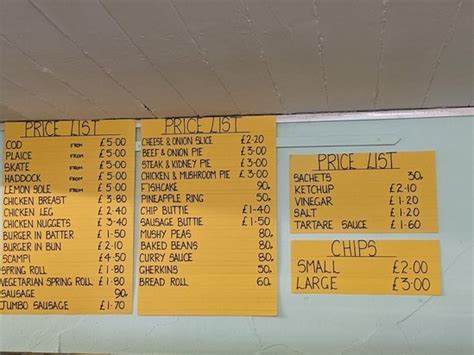 PRICE LIST
COD FROM £5·00
PLAICE FROM £5·00
SKATE FROM £5·00
HADDOCK FROM £5·00
LEMON SOLE FROM £5·00
CHICKEN BREAST £3·80
CHICKEN LEG £2·40
CHICKEN NUGGETS £3·40
BURGER IN BATTER £1·50
BURGER IN BUN £2·10
SCAMPI £4·50
SPRING ROLL £1·80
VEGETARIAN SPRING ROLL £1·80
SAUSAGE 90p
JUMBO SAUSAGE £1·70
PRICE LIST
CHEESE & ONION SLICE £2·20
BEEF & ONION PIE £3·00
STEAK & KIDNEY PIE £3·00
CHICKEN & MUSHROOM PIE £3·00
FISHCAKE 90p
PINEAPPLE RING 50p
CHIP BUTTIE £1·40
SAUSAGE BUTTIE £1·50
MUSHY PEAS
BAKED BEANS
CURRY SAUCE
GHERKINS
BREAD ROLL 60p
PRICE LIST
SACHETS
KETCHUP £2·10
VINEGAR £1·20
SALT £1·20
TARTARE SAUCE £1·60
CHIPS
SMALL £2·00
LARGE £3·00